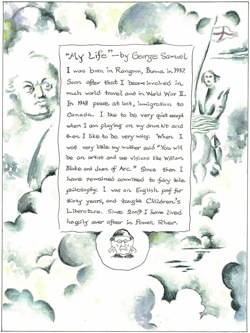 "My Life" — by George Samuel
I was born in Rangoon, Burma in 1937.
Soon after that I became involved in
much world travel and in World War II.
In 1948 peace at last, immigration to
Canada. I like to be very quiet except
when I am playing on my drum kit and
then I like to be very noisy. When I
was very little my mother said "You will
be an artist and see visions like William
Blake and Joan of Arc." Since then I
have remained committed to fairy tale
philosophy. I was an English prof for
thirty years, and taught Children's
Literature. Since 2009 I have lived
happily ever after in Powell River.